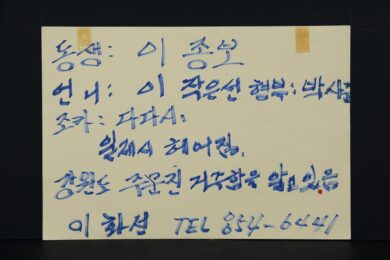 동생: 이 종보
언니: 이 작은선 형부: 박사
조카: 다다시.
일제시 헤어짐.
강원도 주문진 거주함을 알고있음
이 화선 TEL 854-6441